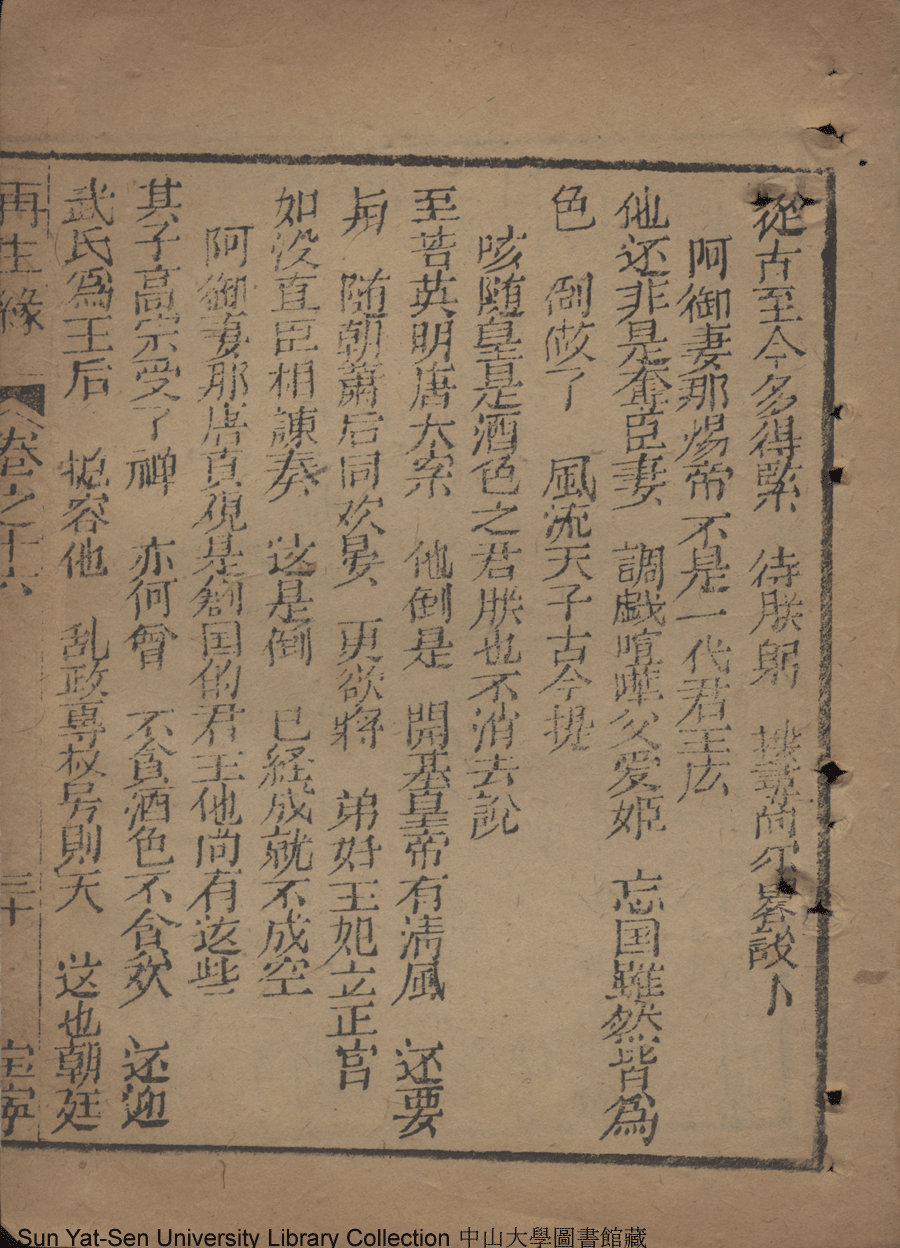 從古至今多得緊　待朕躬　　尚須畧談卜
阿御妻那煬帝不是一代君王庅
他还非是奪臣妻　調戯喧嘩父爱姬　忘国雖然皆為
色　倒做了　風流天子古今提
咳随皇是酒色之君朕也不消去說
至若英明唐太宗　他倒是　開基皇帝有清風　还要
与　随朝蕭后同欢晏　更欲將　弟好王妃立正宫
如没直臣相諫奏　这是倒　已経成就不成空
阿御妻那唐貞观是創国的君王他尚有这些
其子高宗受了禅　亦何曾　不貪酒色不含欢　还迎
武氏為王后　　容他　乱政專权号則天　这也朝廷
再生緣　卷之十六　三十　宝寧
Sun Yat-Sen University Library Collection 中山大學圖書館藏